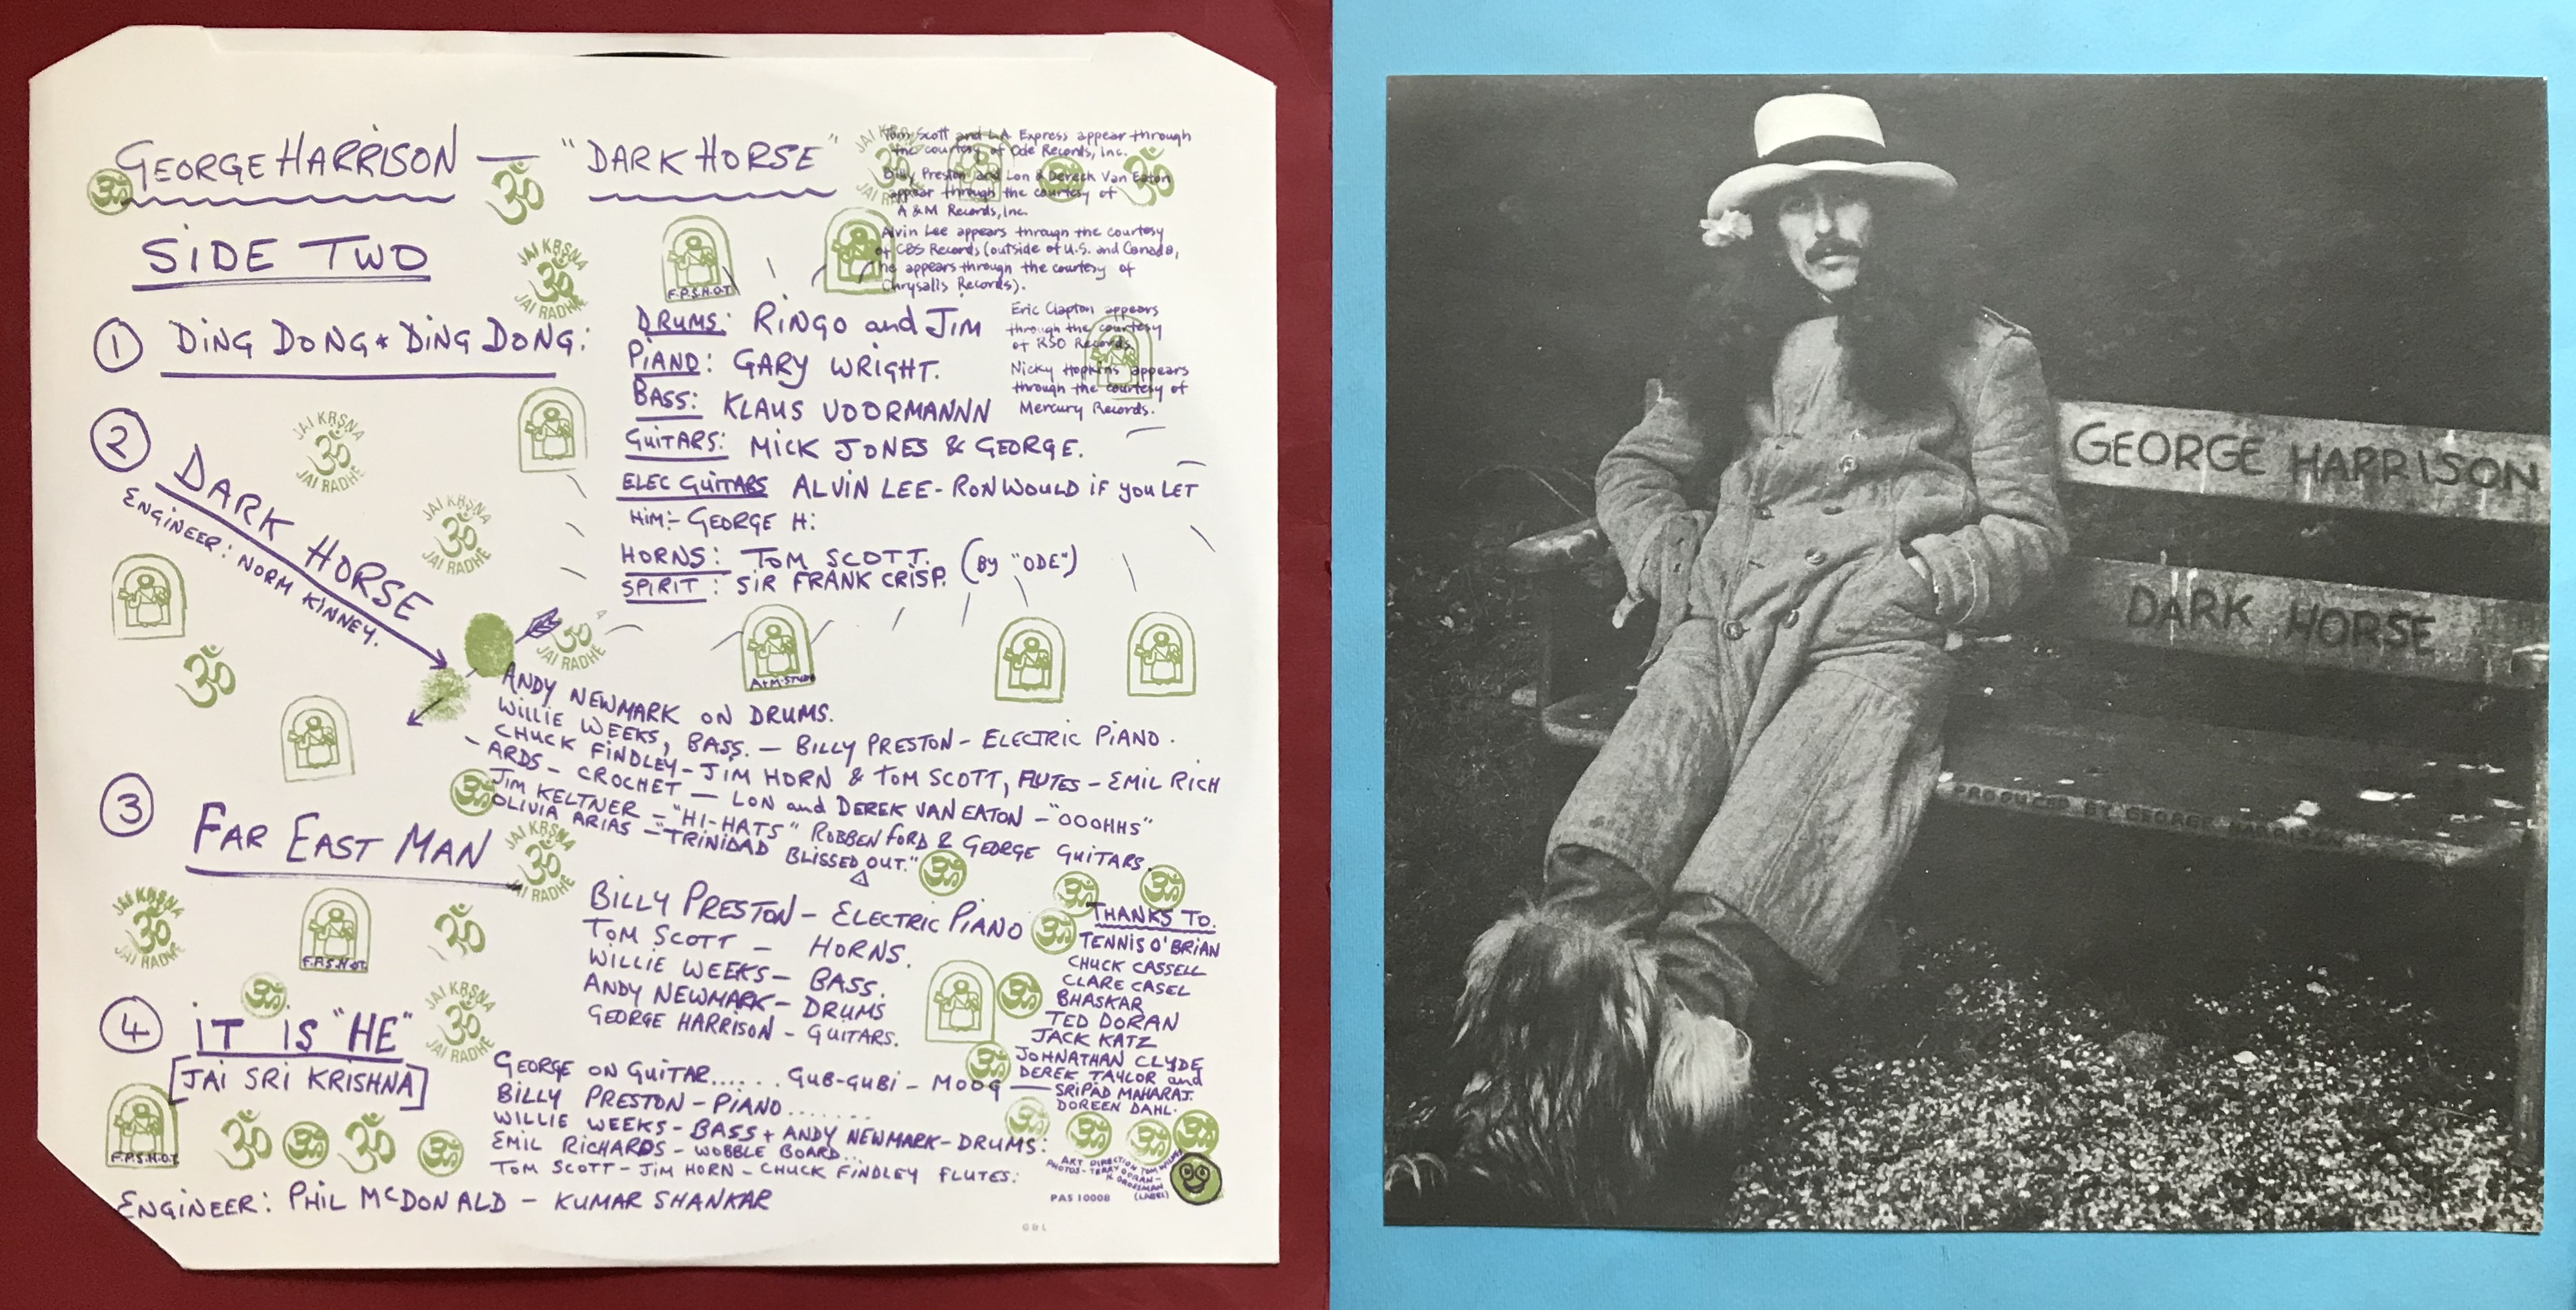 GEORGE HARRISON — "DARK HORSE"
SIDE TWO
Tom Scott and L.A. Express appear through
the courtesy of Ode Records, Inc.
Billy Preston and Lon & Dereck Van Eaton
appear through the courtesy of
A & M Records, Inc.
Alvin Lee appears through the courtesy
of CBS Records (outside of U.S. and Canada,
he appears through the courtesy of
Chrysalis Records).
Eric Clapton appears
through the courtesy
of RSO Records.
Nicky Hopkins appears
through the courtesy of
Mercury Records.
JAI KRSNA
JAI RADHE
F.P.S.H.O.T.
① DING DONG * DING DONG:
DRUMS: RINGO and JIM
PIANO: GARY WRIGHT.
BASS: KLAUS VOORMANNN
GUITARS: MICK JONES & GEORGE.
ELEC GUITARS ALVIN LEE - RON WOULD IF YOU LET
HIM:- GEORGE H:
HORNS: TOM SCOTT. (BY "ODE")
SPIRIT: SIR FRANK CRISP.
② DARK HORSE
ENGINEER: NORM KINNEY.
JAI KRSNA
JAI RADHE
JAI KRSNA
JAI RADHE
JAI RADHE
A+M STUDIO
ANDY NEWMARK ON DRUMS.
WILLIE WEEKS, BASS. — BILLY PRESTON - ELECTRIC PIANO.
CHUCK FINDLEY - JIM HORN & TOM SCOTT, FLUTES - EMIL RICH
- ARDS - CROCHET — LON and DEREK VAN EATON - "OOOHHS"
JIM KELTNER - "HI-HATS" ROBBEN FORD & GEORGE GUITARS.
OLIVIA ARIAS - "TRINIDAD BLISSED OUT."
③ FAR EAST MAN
JAI KRSNA
JAI RADHE
BILLY PRESTON - ELECTRIC PIANO
TOM SCOTT - HORNS.
WILLIE WEEKS - BASS.
ANDY NEWMARK - DRUMS
GEORGE HARRISON - GUITARS.
JAI KRSNA
JAI RADHE
F.P.S.H.OT.
THANKS TO.
TENNIS O'BRIAN
CHUCK CASSELL
CLARE CASEL
BHASKAR
TED DORAN
JACK KATZ
JOHNATHAN CLYDE
DEREK TAYLOR and
SRIPAD MAHARAJ.
DOREEN DAHL.
④ IT IS "HE"
[JAI SRI KRISHNA]
JAI KRSNA
JAI RADHE
F.P.S.H.O.T.
GEORGE ON GUITAR...... GUB-GUBI - MOOG
BILLY PRESTON - PIANO.......
WILLIE WEEKS - BASS + ANDY NEWMARK - DRUMS:
EMIL RICHARDS - WOBBLE BOARD...
TOM SCOTT - JIM HORN - CHUCK FINDLEY FLUTES:
ENGINEER: PHIL McDONALD - KUMAR SHANKAR
ART DIRECTION TOM WILKES
PHOTOS - TERRY DORAN -
H. GROSSMAN
(LABEL)
PAS 10008
GEORGE HARRISON
DARK HORSE
PRODUCED BY GEORGE HARRISON